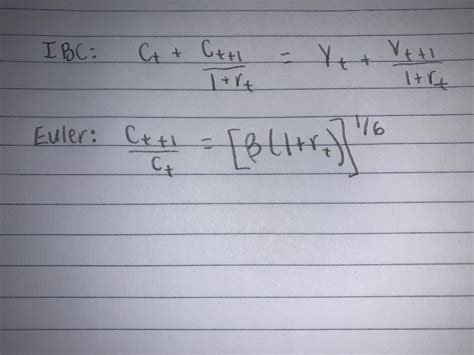 IBC: Ct + Ct+1/1+rt = Yt + Yt+1/1+rt
Euler: Ct+1/Ct = [β(1+rt)]^1/6